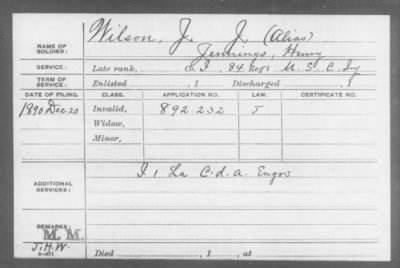 Wilson, J. J. (Alias)
NAME OF SOLDIER: Jennings, Henry
SERVICE: Late rank, Co. I, 84 Regt U. S. C. Inf
TERM OF SERVICE: Enlisted , 1 Discharged , 1
DATE OF FILING. CLASS. APPLICATION NO. LAW. CERTIFICATE NO.
1890 Dec 20 Invalid, 892.232 J
Widow,
Minor,
ADDITIONAL SERVICES: I 1 La C. d. A. Engrs
REMARKS: M. M.
J. H. W.
Died , 1 , at